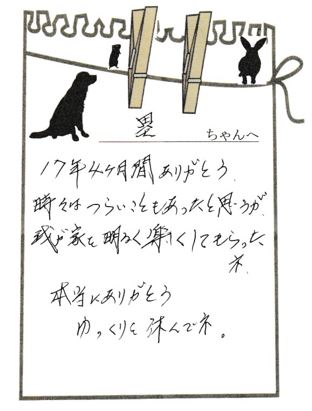 塁 ちゃんへ
17年4ケ月間ありがとう
時々はつらいこともあったと思うが
我が家を明るく楽しくしてもらった
ネ
本当にありがとう
ゆっくりと休んでネ。